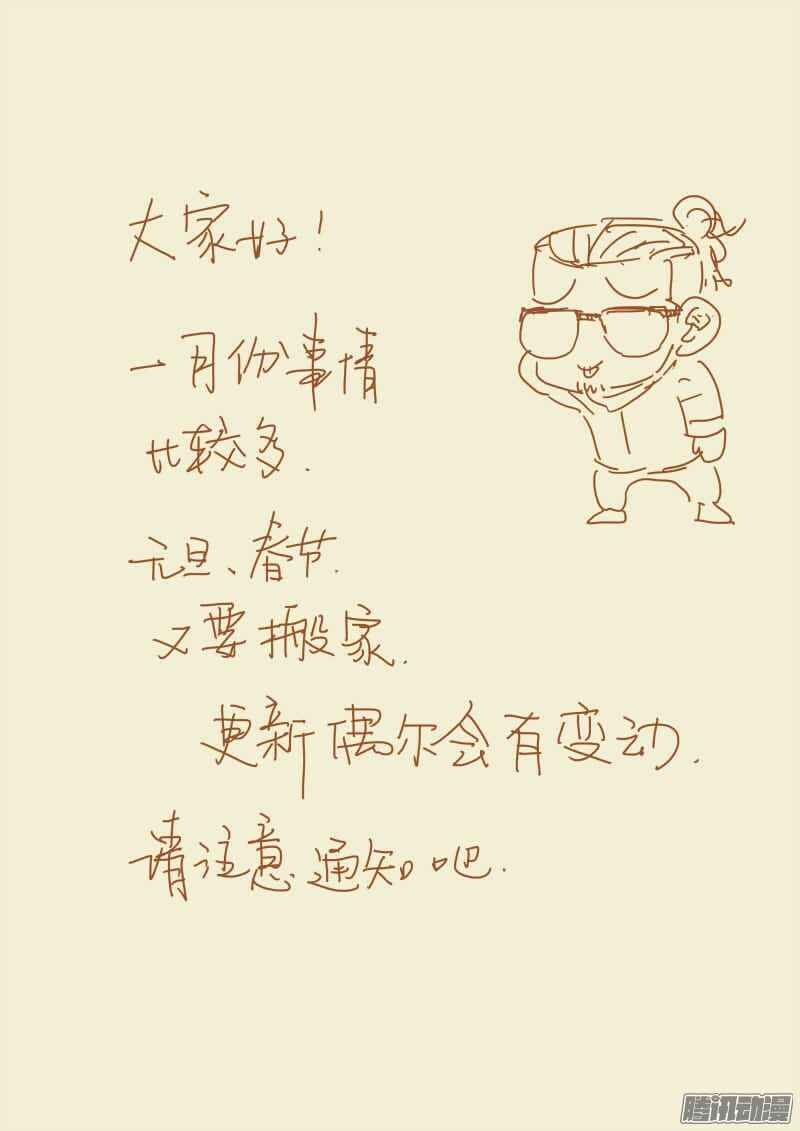 大家好!
一月份事情
比较多.
元旦、春节.
又要搬家.
更新偶尔会有变动.
请注意通知吧.
腾讯动漫